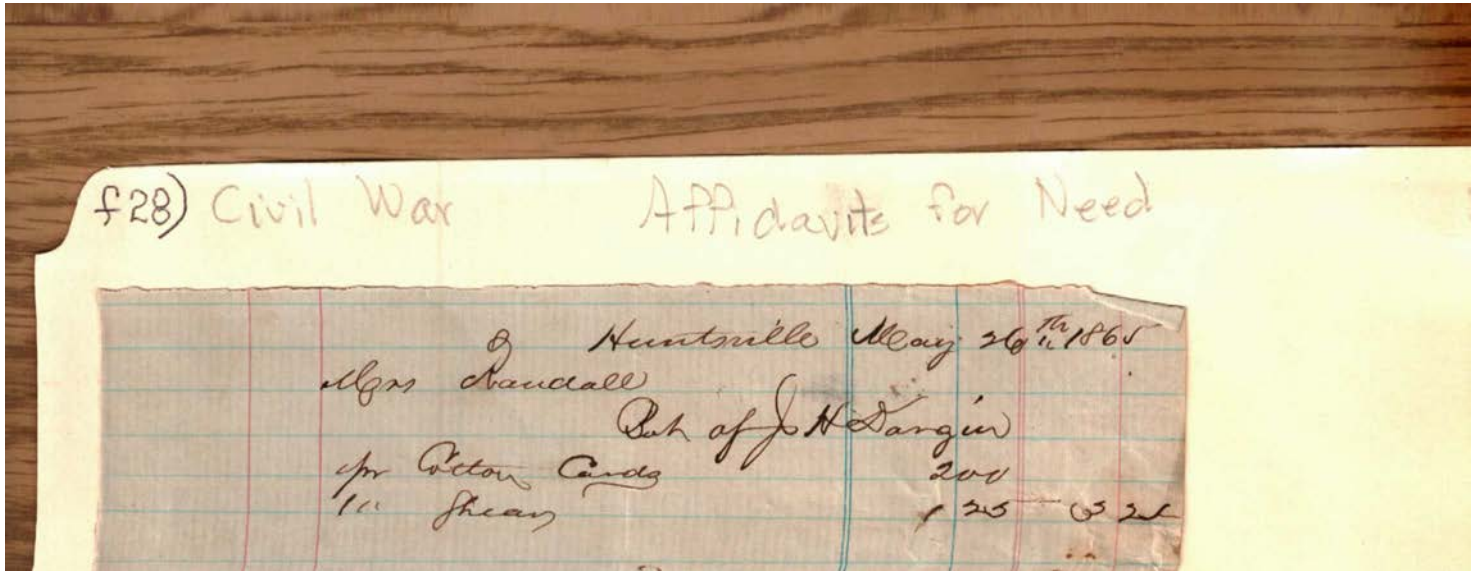 f28) Civil War Affidavits for Need
Huntsville May 26th 1865
Mrs Randall
Bot of J H Dargin
pr Cotton Cards 200
1 " Shears 1 25 3 25